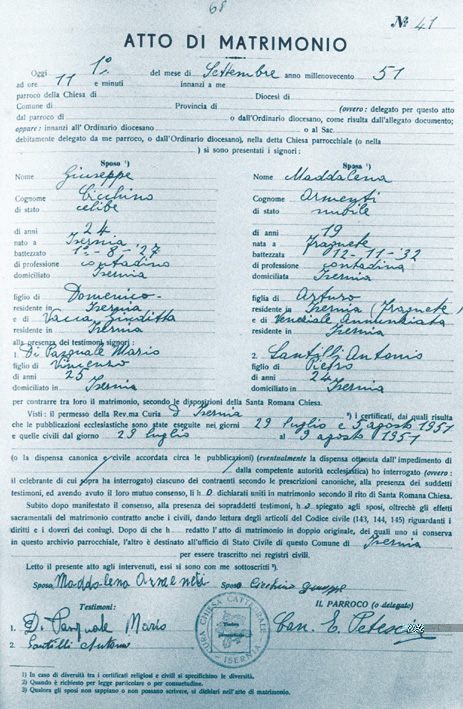 68
№ 41
ATTO DI MATRIMONIO
Oggi 1º del mese di Settembre anno millenovecento 51
ad ore 11 e minuti innanzi a me
parroco della Chiesa di Diocesi di
Comune di Provincia di (ovvero: delegato per questo atto
dal parroco di o dall'Ordinario diocesano, come risulta dall'allegato documento;
oppure: innanzi all'Ordinario diocesano o al Sac.
debitamente delegato da me parroco, o dall'Ordinario), nella detta Chiesa parrocchiale (o nella
) si sono presentati i signori:
Sposo ¹) Sposa ¹)
Nome Giuseppe Nome Maddalena
Cognome Cicchino Cognome Armenti
di stato celibe di stato nubile
di anni 24 di anni 19
nato a Isernia nata a Fragnete
battezzato 12-8-'27 battezzata 12-11-'32
di professione contadino di professione contadina
domiciliato Isernia domiciliata Isernia
figlio di Domenico figlia di Arturo
residente in Isernia residente in Isernia (Fragnete)
e di Vacca Giuditta e di Veneziale Annunziata
residente in Isernia residente in Isernia
alla presenza dei testimoni signori:
1. Di Pasquale Mario 2. Santilli Antonio
figlio di Vincenzo figlio di Pietro
di anni 25 di anni 24
domiciliato in Isernia domiciliato in Isernia
per contrarre tra loro il matrimonio, secondo le disposizioni della Santa Romana Chiesa.
Visti: il permesso della Rev.ma Curia d Isernia ²) i certificati, dai quali risulta
che le pubblicazioni ecclesiastiche sono state eseguite nei giorni 29 luglio e 5 agosto 1951
e quelle civili dal giorno 29 luglio al 9 agosto 1951
(o la dispensa canonica e civile circa le pubblicazioni) (eventualmente la dispensa ottenuta dall'impedimento di
dalla competente autorità ecclesiastica) ho interrogato (ovvero:
il celebrante di cui sopra ha interrogato) ciascuno dei contraenti secondo le prescrizioni canoniche, alla presenza dei suddetti
testimoni, ed avendo avuto il loro mutuo consenso, li ho dichiarati uniti in matrimonio secondo il rito di Santa Romana Chiesa.
Subito dopo manifestato il consenso, alla presenza dei sopraddetti testimoni, ho spiegato agli sposi, oltrechè gli effetti
sacramentali del matrimonio contratto anche i civili, dando lettura degli articoli del Codice civile (143, 144, 145) riguardanti i
diritti e i doveri dei coniugi. Dopo di che h redatto l'atto di matrimonio in doppio originale, dei quali uno si conserva
in questo archivio parrocchiale, l'altro è destinato all'ufficio di Stato Civile di questo Comune di Isernia
per essere trascritto nei registri civili.
Letto il presente atto agli intervenuti, essi si sono con me sottoscritti ³).
Sposa Maddalena Armenti Sposo Cicchino Giuseppe
Testimoni: IL PARROCO (o delegato)
1. Di Pasquale Mario Can. E. Petescia
2. Santilli Antonio
CURA CHIESA CATTEDRALE
ISERNIA
1) In caso di diversità tra i certificati religiosi e civili si specifichino le diversità.
2) Quando è richiesto per legge particolare o per consuetudine.
3) Qualora gli sposi non sappiano o non possano scrivere, si dichiari nell'atto di matrimonio.